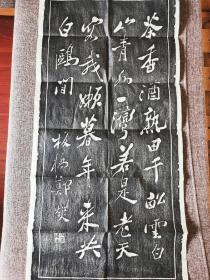 茶香酒熟田千畝雲白
山青水一灣若是老天
容我懶暮年來共
白鷗閒
板橋鄭燮